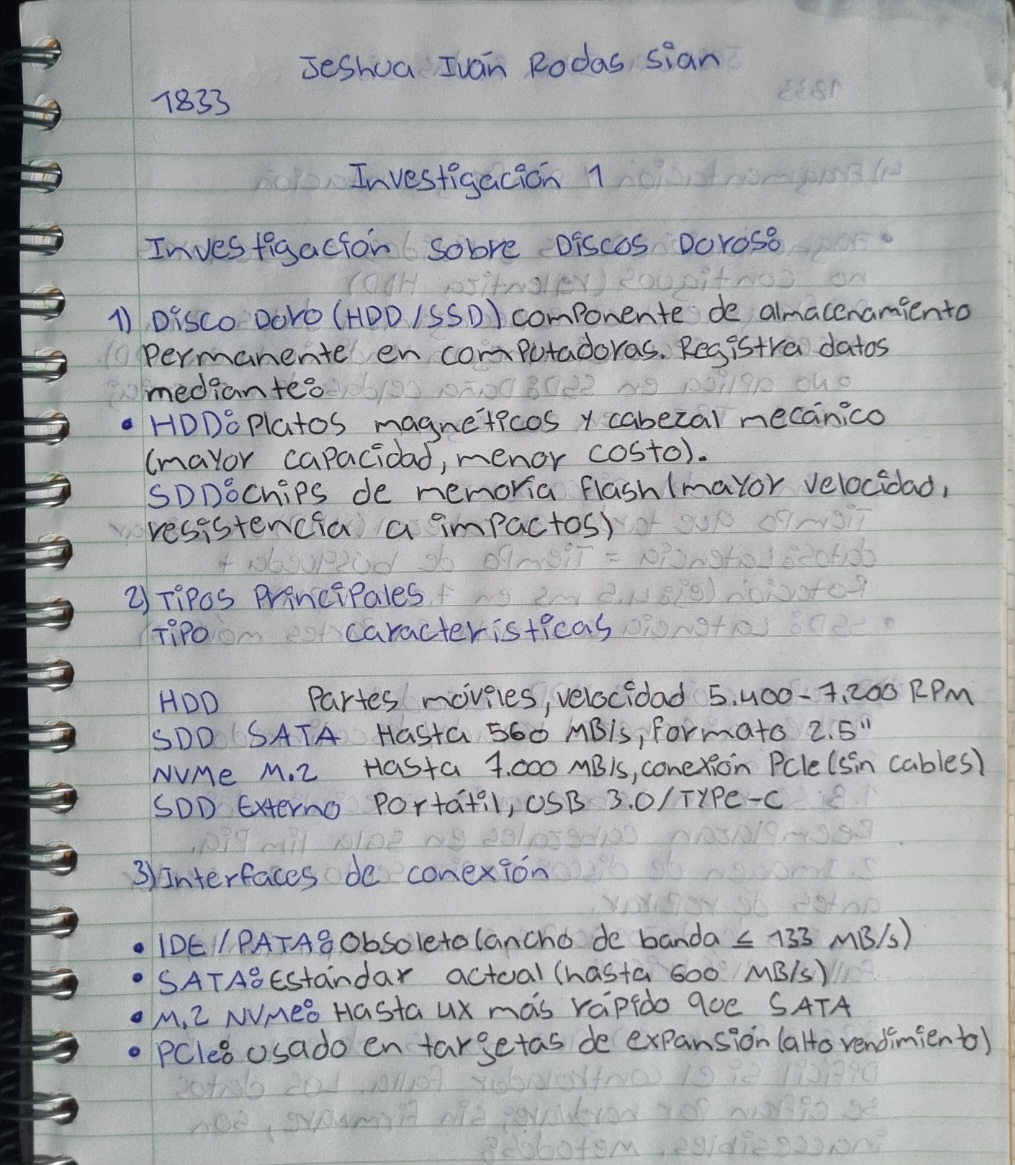 Jeshua Iván Rodas Sian
1833
Investigación 1
Investigación sobre Discos Duros:
1) Disco Duro (HDD/SSD) componente de almacenamiento
Permanente en computadoras. Registra datos
mediante:
• HDD: Platos magnéticos y cabezal mecánico
(mayor capacidad, menor costo).
SDD: chips de memoria flash (mayor velocidad,
resistencia a impactos)
2) Tipos Principales
Tipo características
HDD Partes móviles, velocidad 5.400-7.200 RPM
SDD SATA Hasta 560 MB/s, formato 2.5"
NVMe M.2 Hasta 7.000 MB/s, conexión PCIe (sin cables)
SDD Externo Portátil, USB 3.0/TYPE-C
3) Interfaces de conexión
• IDE/PATA: Obsoleto (ancho de banda ≤ 133 MB/s)
• SATA: Estándar actual (hasta 600 MB/s)
• M.2 NVMe: Hasta 4x más rápido que SATA
• PCIe: usado en targetas de expansión (alto rendimiento)